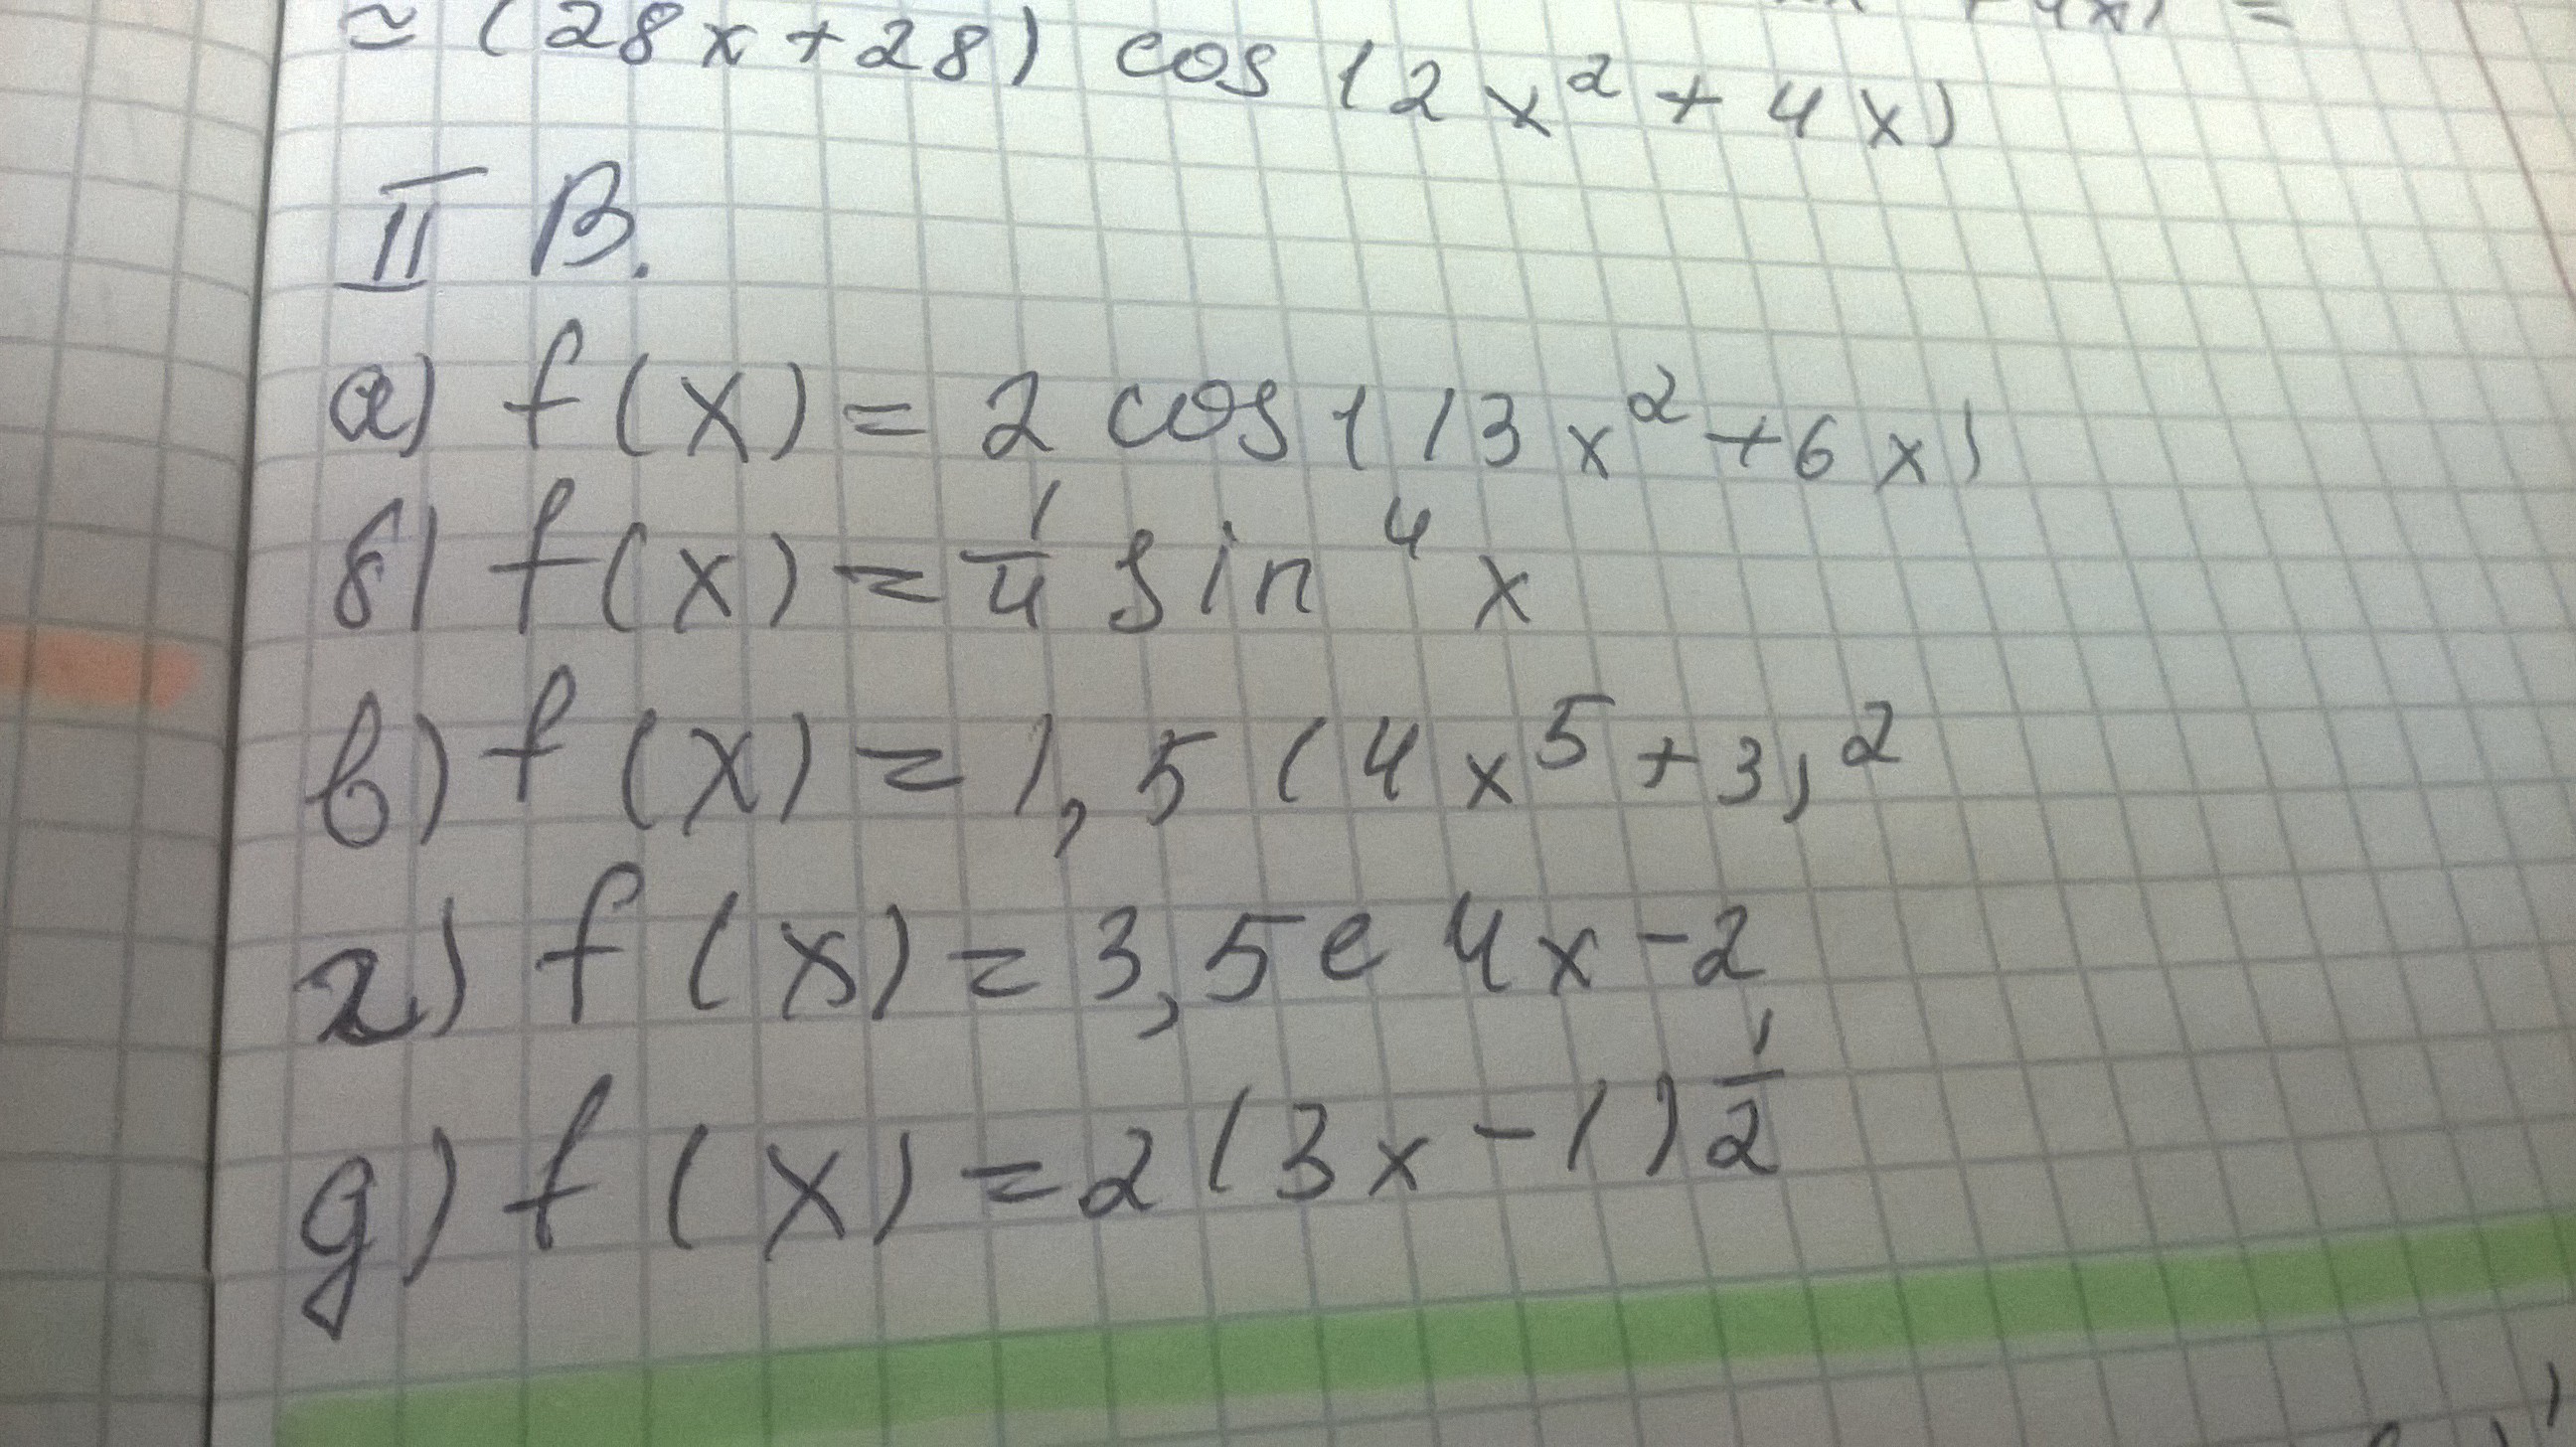 = (28x+28) cos (2x²+4x)
II В.
а) f(x) = 2 cos ((3x²+6x)
б) f(x) = 1/4 sin⁴ x
в) f(x) = 1,5 (4x⁵+3)²
г) f(x) = 3,5e 4x-2
д) f(x) = 2(3x-1)^(1/2)